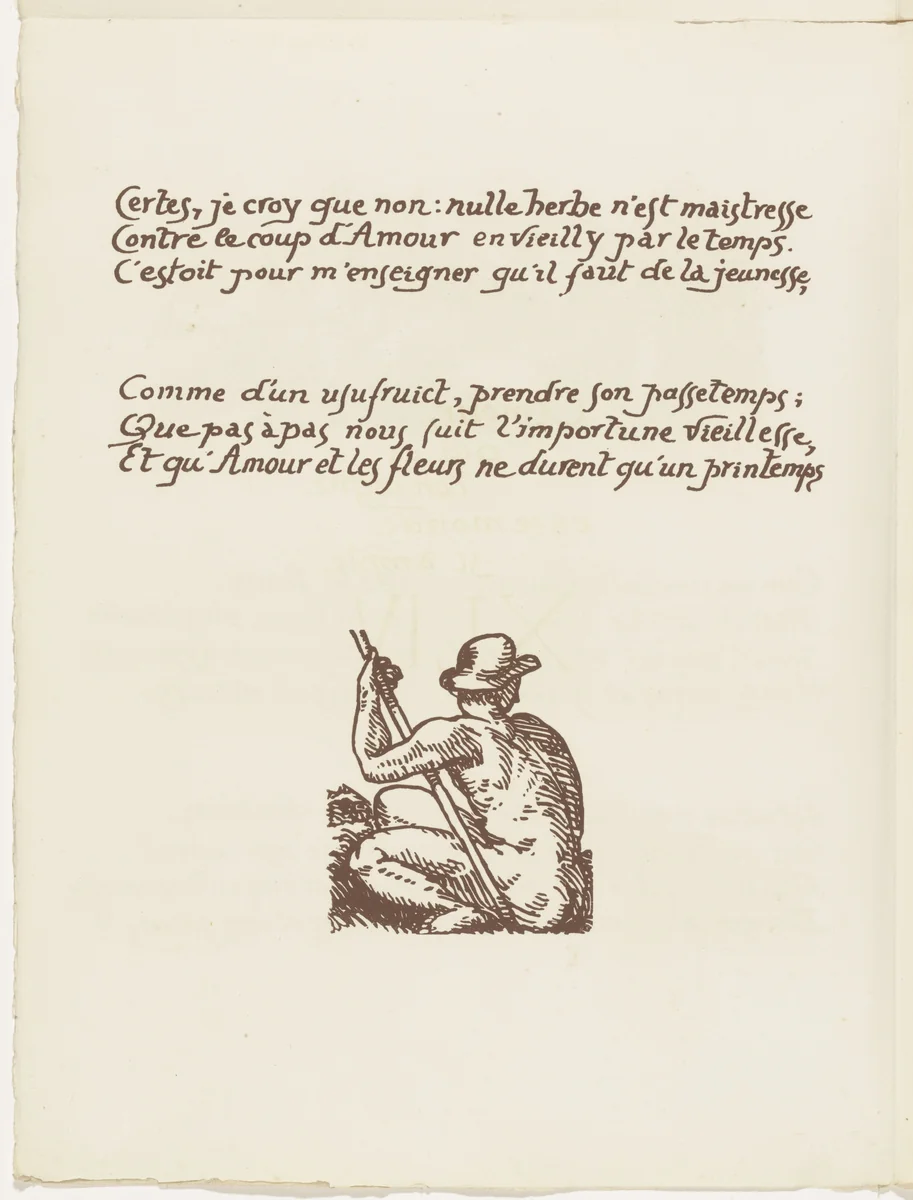 Certes, je croy que non: nulle herbe n'est maistresse
Contre le coup d'Amour envieilly par le temps.
C'estoit pour m'enseigner qu'il faut de la jeunesse,
Comme d'un usufruict, prendre son passetemps;
Que pas à pas nous suit l'importune vieillesse,
Et qu'Amour et les fleurs ne durent qu'un printemps